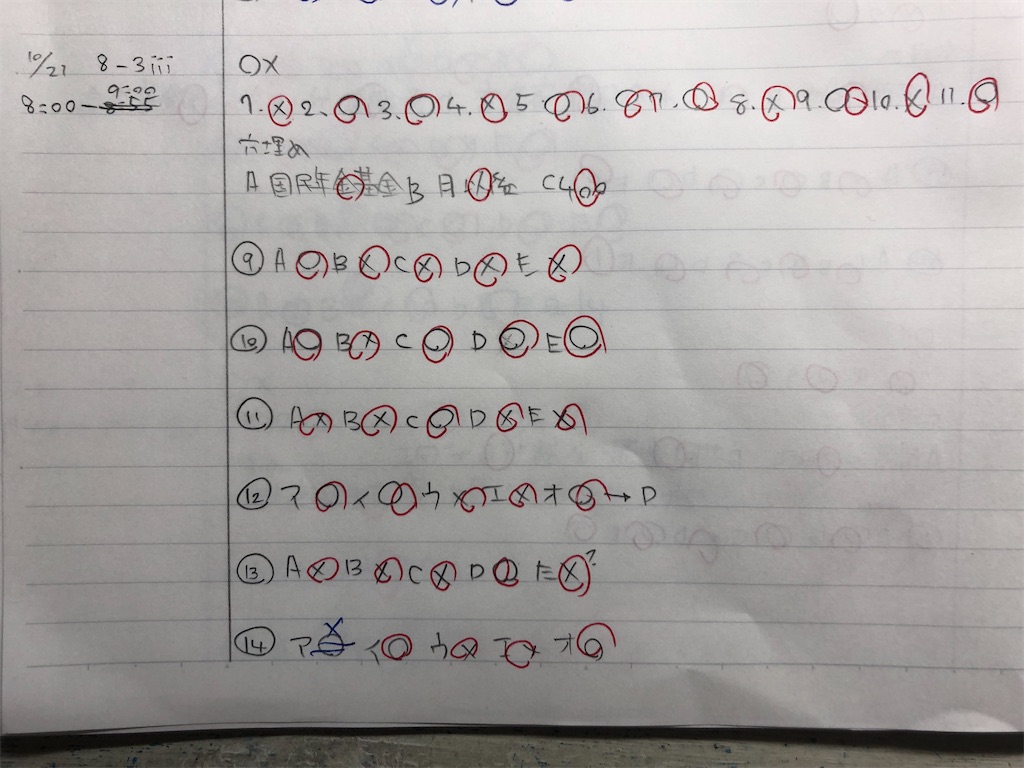 10/21 8-3iii
9:00
8:00-8:55
OX
1.× 2.○ 3.○ 4.× 5 ○ 6.○ 7.○ 8.× 9.○ 10.× 11.○
穴埋め
A 国民年金基金 B 月 C 400
⑨ A ○ B × C × D × E ×
⑩ A ○ B × C ○ D ○ E ○
⑪ A × B × C ○ D × E ×
⑫ ア ○ イ ○ ウ × エ × オ ○ → D
⑬ A × B × C × D ○ E ×?
⑭ ア × イ ○ ウ × エ × オ ○